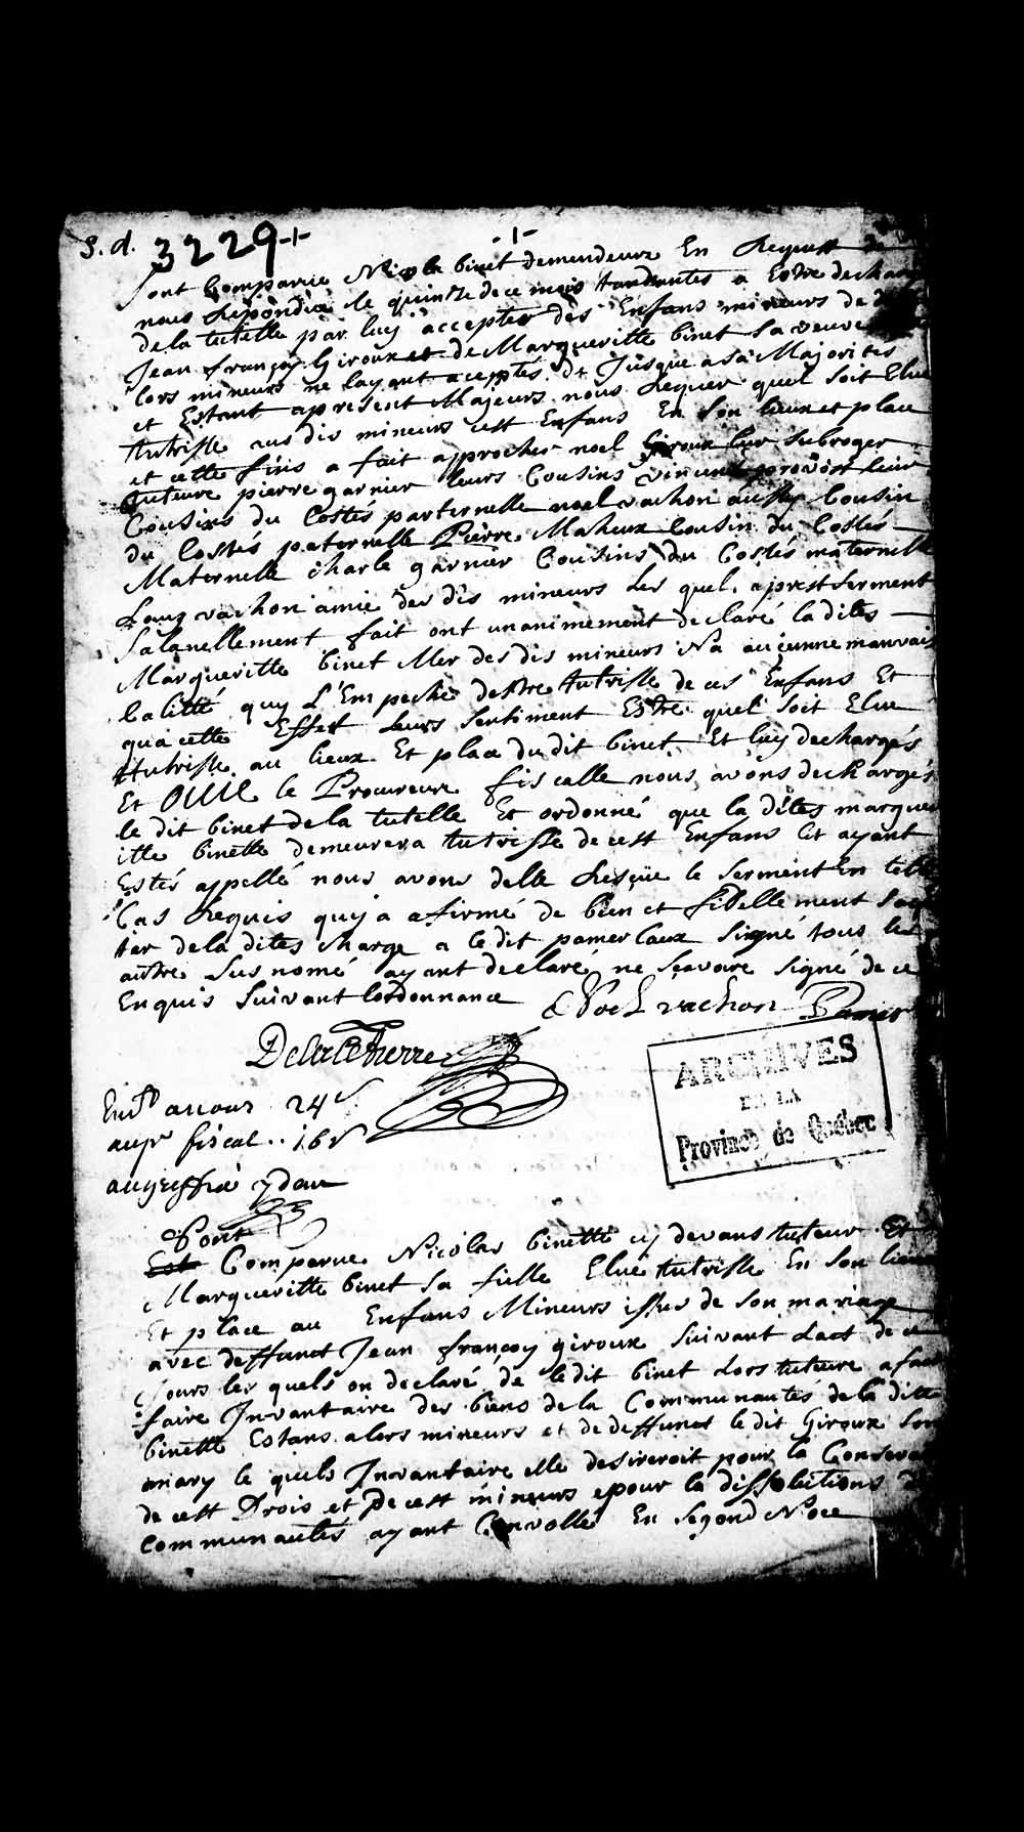 S. d. 3229
Sont Comparue Nicolas binet demendeure En Requeste de
nous Repondüe le quinze de ce mois tandantes a Estre decharg
de la tutelle par luy accepter des Enfans mineurs de
Jean françoy Giroux et de Margueritte binet sa veuve
lors mineurs ne layant aceptés. Jusque a sa Majorites
et Estant apresent Majeurs nous Requer quel soit Elue
tutrisse aus dis mineurs cest Enfans En son lieux et place
et cette fins a fait approcher noel Giroux leur subroger
tuteure pierre garnier leurs Cousins vincent provost leur
Cousins du Costés parternelle noel vachon aussy Cousin
du Costés paternelle Pierre Maheux Cousin du Costés
Maternelle charle garnier Cousins du Costés maternelle
Louis vachon amie des dis mineurs les quel aprest serment
salanellement fait ont unanimement declaré la dites
Margueritte binet Mer des dis mineurs Na aucunne mauvais
calitté quy L'Empeche destre tutrisse de ces Enfans Et
qua cette Effet Leurs sentiment Estre quel soit Elue
tutrisse au lieux Et place du dit binet Et luy dechargés
Et OUIE le Procureure fiscalle nous avons dechargés
le dit binet de la tutelle Et ordonné que la dites margue
itte binette demeurera tutrisse de cest Enfans Et ayant
Estés appellé nous avons delle Resçüe le serment En telle
Cas Requis quy a afirmé de bien et fidellement
ter de la dites charge a le dit pamerlaux signé tous les
autre sus nomé ayant declaré ne sçavoire signé de ce
Enquis suivant lordonnance Noel vachon
Delacetierre
24s
fiscal .. 16s

Sont
Est Comparue Nicolas binette cy devans tuteur Et
Margueritte binet sa fielle Elue tutrisse En son lieux
Et place au Enfans Mineurs issus de son mariage
avec deffunct Jean françoy giroux suivant Lact de ce
Jours les quels on declaré de ledit binet Lors tuteure a fait
faire Invantaire des biens de la Communautés de la ditte
binette Estans alors mineurs et de deffunct le dit Giroux son
mary le quels Invantaire elle desireroit pour la Conserva
de cest Drois et de cest mineurs epour la dissolutions
communautés ayant Convollé En segond Noce
ARCHIVES
DE LA
Province de Québec